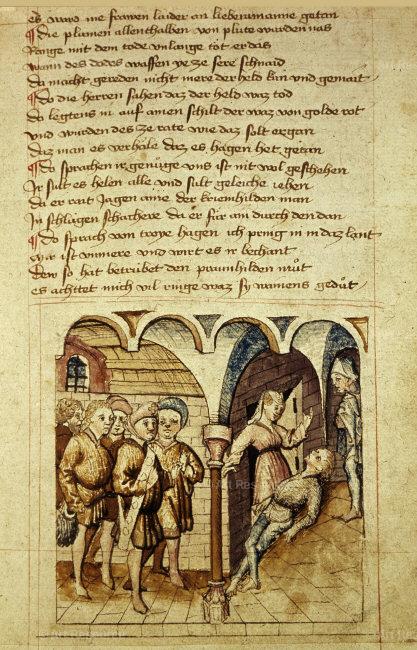 es ward nie frawen laider an lieberm manne getan
¶ Die plumen allenthalben von plute wurden nas
Range mit dem tode vnlange tet er das
wann des dodes waffen ye ze sere schnaid
Da macht gereden nicht mere der held kün vnd gemait
¶ Do die herren sahen daz der held waz tod
Do legtens in auf ainen schilt der waz von golde rot
vnd wurden des ze rate wie daz solt ergan
daz man es verhale daz es hagen het getan
¶ Do sprachen ir genüge vns ist nit wol geschehen
Ir sult es helen alle vnd sult geleiche iehen
Da er rait Jagen aine der kriemhilden man
In schlügen schachere da er für durch den dan
¶ Do sprach von troye hagen ich preng in in daz lant
mir ist vnmere vnd wirt es ir bechant
Dew so hat betrübet den praunhilden müt
es achttet mich vil ringe waz sy wainens gedüt